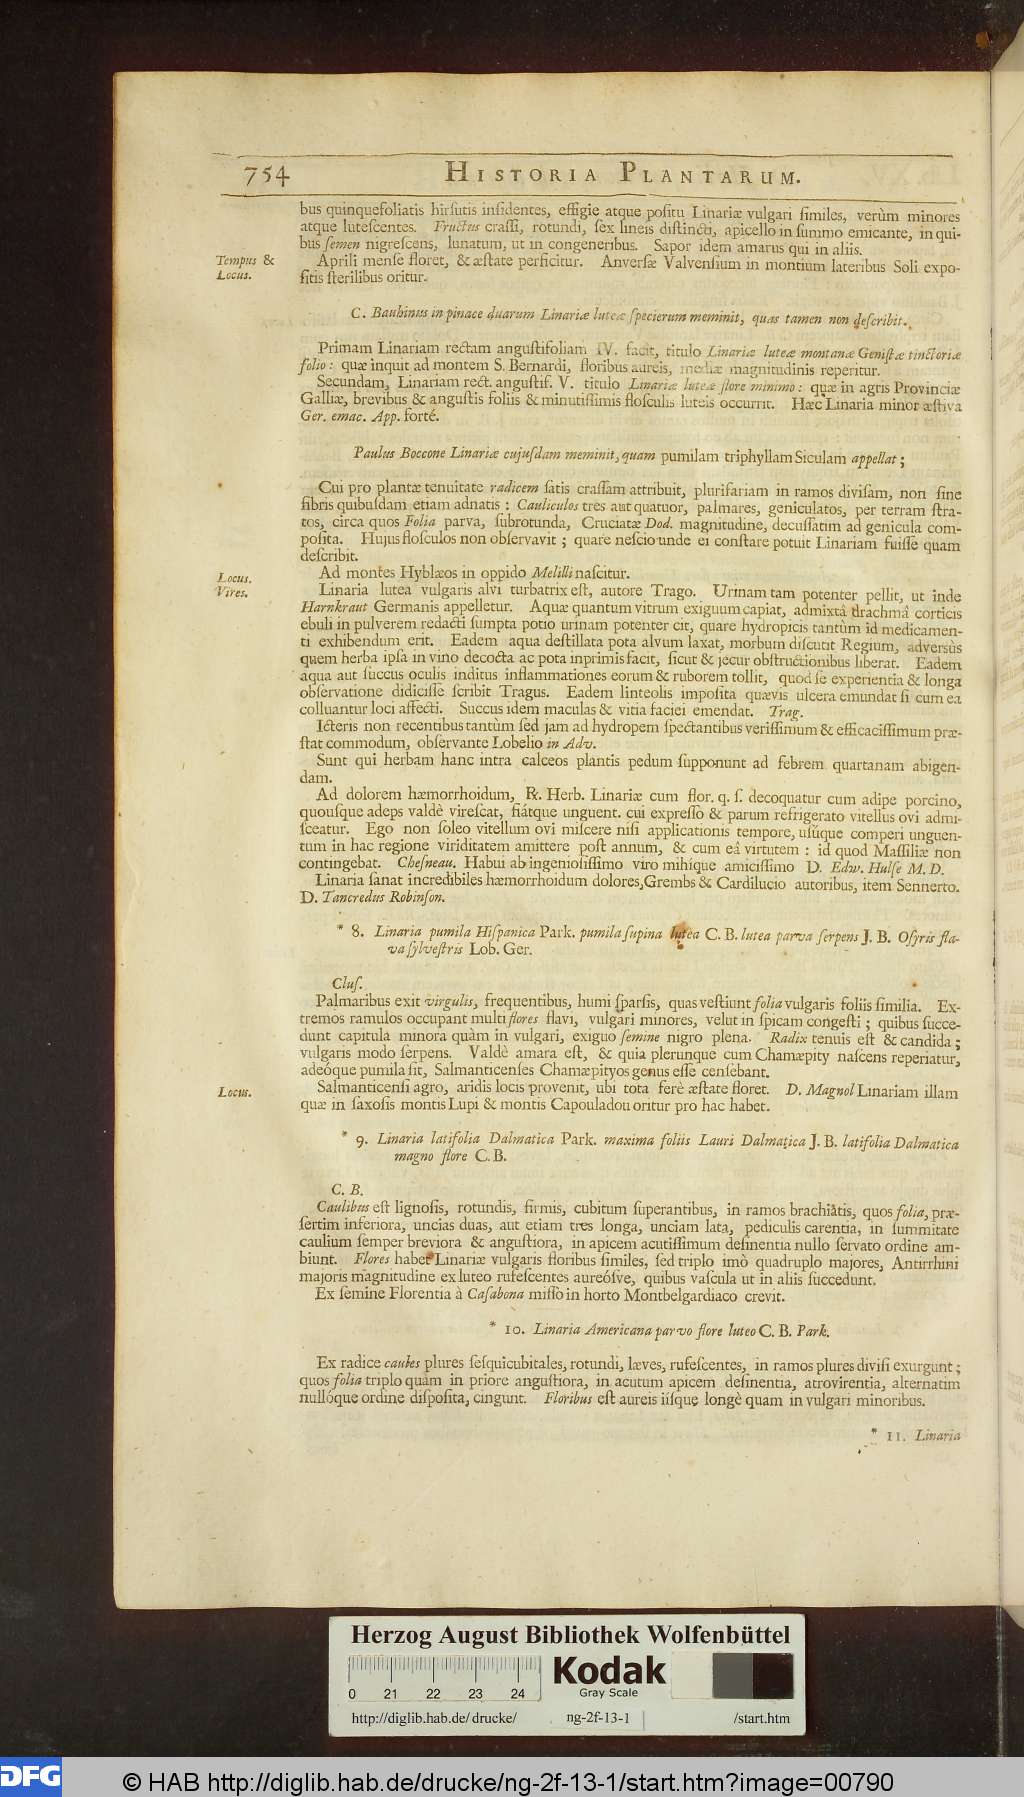 754 HISTORIA PLANTARUM.
bus quinquefoliatis hirſutis inſidentes, effigie atque poſitu Linariæ vulgari ſimiles, verùm minores
atque luteſcentes. Fructus craſſi, rotundi, ſex lineis diſtincti, apicello in ſummo emicante, in qui-
bus ſemen nigreſcens, lunatum, ut in congeneribus. Sapor idem amarus qui in aliis.
Tempus & Locus.
Aprili menſe floret, & æſtate perficitur. Anverſæ Valvenſium in montium lateribus Soli expo-
ſitis ſterilibus oritur.
C. Bauhinus in pinace duarum Linariæ luteæ ſpecierum meminit, quas tamen non deſcribit.
Primam Linariam rectam anguſtifoliam IV. facit, titulo Linariæ luteæ montanæ Geniſtæ tinctoriæ
folio: quæ inquit ad montem S. Bernardi, floribus aureis, mediæ magnitudinis reperitur.
Secundam, Linariam rect. anguſtif. V. titulo Linariæ luteæ flore minimo: quæ in agris Provinciæ
Galliæ, brevibus & anguſtis foliis & minutiſſimis floſculis luteis occurrit. Hæc Linaria minor æſtiva
Ger. emac. App. forté.
Paulus Boccone Linariæ cujuſdam meminit, quam pumilam triphyllam Siculam appellat;
Cui pro plantæ tenuitate radicem ſatis craſſam attribuit, plurifariam in ramos diviſam, non ſine
fibris quibuſdam etiam adnatis: Cauliculos tres aut quatuor, palmares, geniculatos, per terram ſtra-
tos, circa quos Folia parva, ſubrotunda, Cruciatæ Dod. magnitudine, decuſſatim ad genicula com-
poſita. Hujus floſculos non obſervavit; quare neſcio unde ei conſtare potuit Linariam fuiſſe quam
deſcribit.
Locus.
Ad montes Hyblæos in oppido Melilli naſcitur.
Vires.
Linaria lutea vulgaris alvi turbatrix eſt, autore Trago. Urinam tam potenter pellit, ut inde
Harnkraut Germanis appelletur. Aquæ quantum vitrum exiguum capiat, admixtâ drachmâ corticis
ebuli in pulverem redacti ſumpta potio urinam potenter cit, quare hydropicis tantùm id medicamen-
ti exhibendum erit. Eadem aqua deſtillata pota alvum laxat, morbum diſcutit Regium, adversùs
quem herba ipſa in vino decocta ac pota inprimis facit, ſicut & jecur obſtructionibus liberat. Eadem
aqua aut ſuccus oculis inditus inflammationes eorum & ruborem tollit, quod ſe experientia & longa
obſervatione didiciſſe ſcribit Tragus. Eadem linteolis impoſita quævis ulcera emundat ſi cum ea
colluantur loci affecti. Succus idem maculas & vitia faciei emendat. Trag.
Icteris non recentibus tantùm ſed jam ad hydropem ſpectantibus veriſſimum & efficaciſſimum præ-
ſtat commodum, obſervante Lobelio in Adv.
Sunt qui herbam hanc intra calceos plantis pedum ſupponunt ad febrem quartanam abigen-
dam.
Ad dolorem hæmorrhoidum, ℞. Herb. Linariæ cum flor. q. ſ. decoquatur cum adipe porcino,
quouſque adeps valdè vireſcat, fiátque unguent. cui expreſſo & parum refrigerato vitellus ovi admi-
ſceatur. Ego non ſoleo vitellum ovi miſcere niſi applicationis tempore, uſúque comperi unguen-
tum in hac regione viriditatem amittere poſt annum, & cum eâ virtutem: id quod Maſſiliæ non
contingebat. Cheſneau. Habui ab ingenioſiſſimo viro mihíque amiciſſimo D. Edw. Hulſe M. D.
Linaria ſanat incredibiles hæmorrhoidum dolores, Grembs & Cardilucio autoribus, item Sennerto.
D. Tancredus Robinſon.
* 8. Linaria pumila Hiſpanica Park. pumila ſupina lutea C. B. lutea parva ſerpens J. B. Oſyris fla-
va ſylveſtris Lob. Ger.
Cluſ.
Palmaribus exit virgulis, frequentibus, humi ſparſis, quas veſtiunt folia vulgaris foliis ſimilia. Ex-
tremos ramulos occupant multi flores flavi, vulgari minores, velut in ſpicam congeſti; quibus ſucce-
dunt capitula minora quàm in vulgari, exiguo ſemine nigro plena. Radix tenuis eſt & candida;
vulgaris modo ſerpens. Valdè amara eſt, & quia plerunque cum Chamæpity naſcens reperiatur,
adeóque pumila ſit, Salmanticenſes Chamæpityos genus eſſe cenſebant.
Locus.
Salmanticenſi agro, aridis locis provenit, ubi tota ferè æſtate floret. D. Magnol Linariam illam
quæ in ſaxoſis montis Lupi & montis Capouladou oritur pro hac habet.
* 9. Linaria latifolia Dalmatica Park. maxima foliis Lauri Dalmatica J. B. latifolia Dalmatica
magno flore C. B.
C. B.
Caulibus eſt lignoſis, rotundis, firmis, cubitum ſuperantibus, in ramos brachiatis, quos folia, præ-
ſertim inferiora, uncias duas, aut etiam tres longa, unciam lata, pediculis carentia, in ſummitate
caulium ſemper breviora & anguſtiora, in apicem acutiſſimum deſinentia nullo ſervato ordine am-
biunt. Flores habet Linariæ vulgaris floribus ſimiles, ſed triplo imò quadruplo majores, Antirrhini
majoris magnitudine ex luteo rufeſcentes aureóſve, quibus vaſcula ut in aliis ſuccedunt.
Ex ſemine Florentia à Caſabona miſſo in horto Montbelgardiaco crevit.
* 10. Linaria Americana parvo flore luteo C. B. Park.
Ex radice caules plures ſeſquicubitales, rotundi, læves, rufeſcentes, in ramos plures diviſi exurgunt;
quos folia triplo quàm in priore anguſtiora, in acutum apicem deſinentia, atrovirentia, alternatim
nullóque ordine diſpoſita, cingunt. Floribus eſt aureis iiſque longè quam in vulgari minoribus.
* 11. Linaria
Herzog August Bibliothek Wolfenbüttel
0 21 22 23 24
Kodak
Gray Scale
http://diglib.hab.de/drucke/ ng-2f-13-1 /start.htm
DFG © HAB http://diglib.hab.de/drucke/ng-2f-13-1/start.htm?image=00790